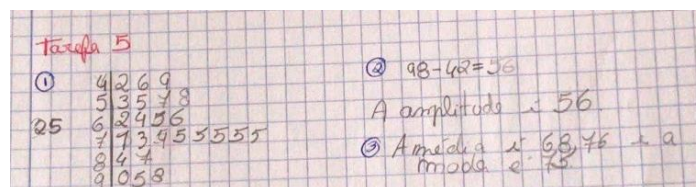 Tarefa 5
①
4|2 6 9
5|3 5 7 8
25 6|2 4 5 6
7|1 3 4 5 5 5 5 5
8|4 7
9|0 5 8
② 98-42=56
A amplitude é 56
③ A média é 68,76 e a
moda é 75